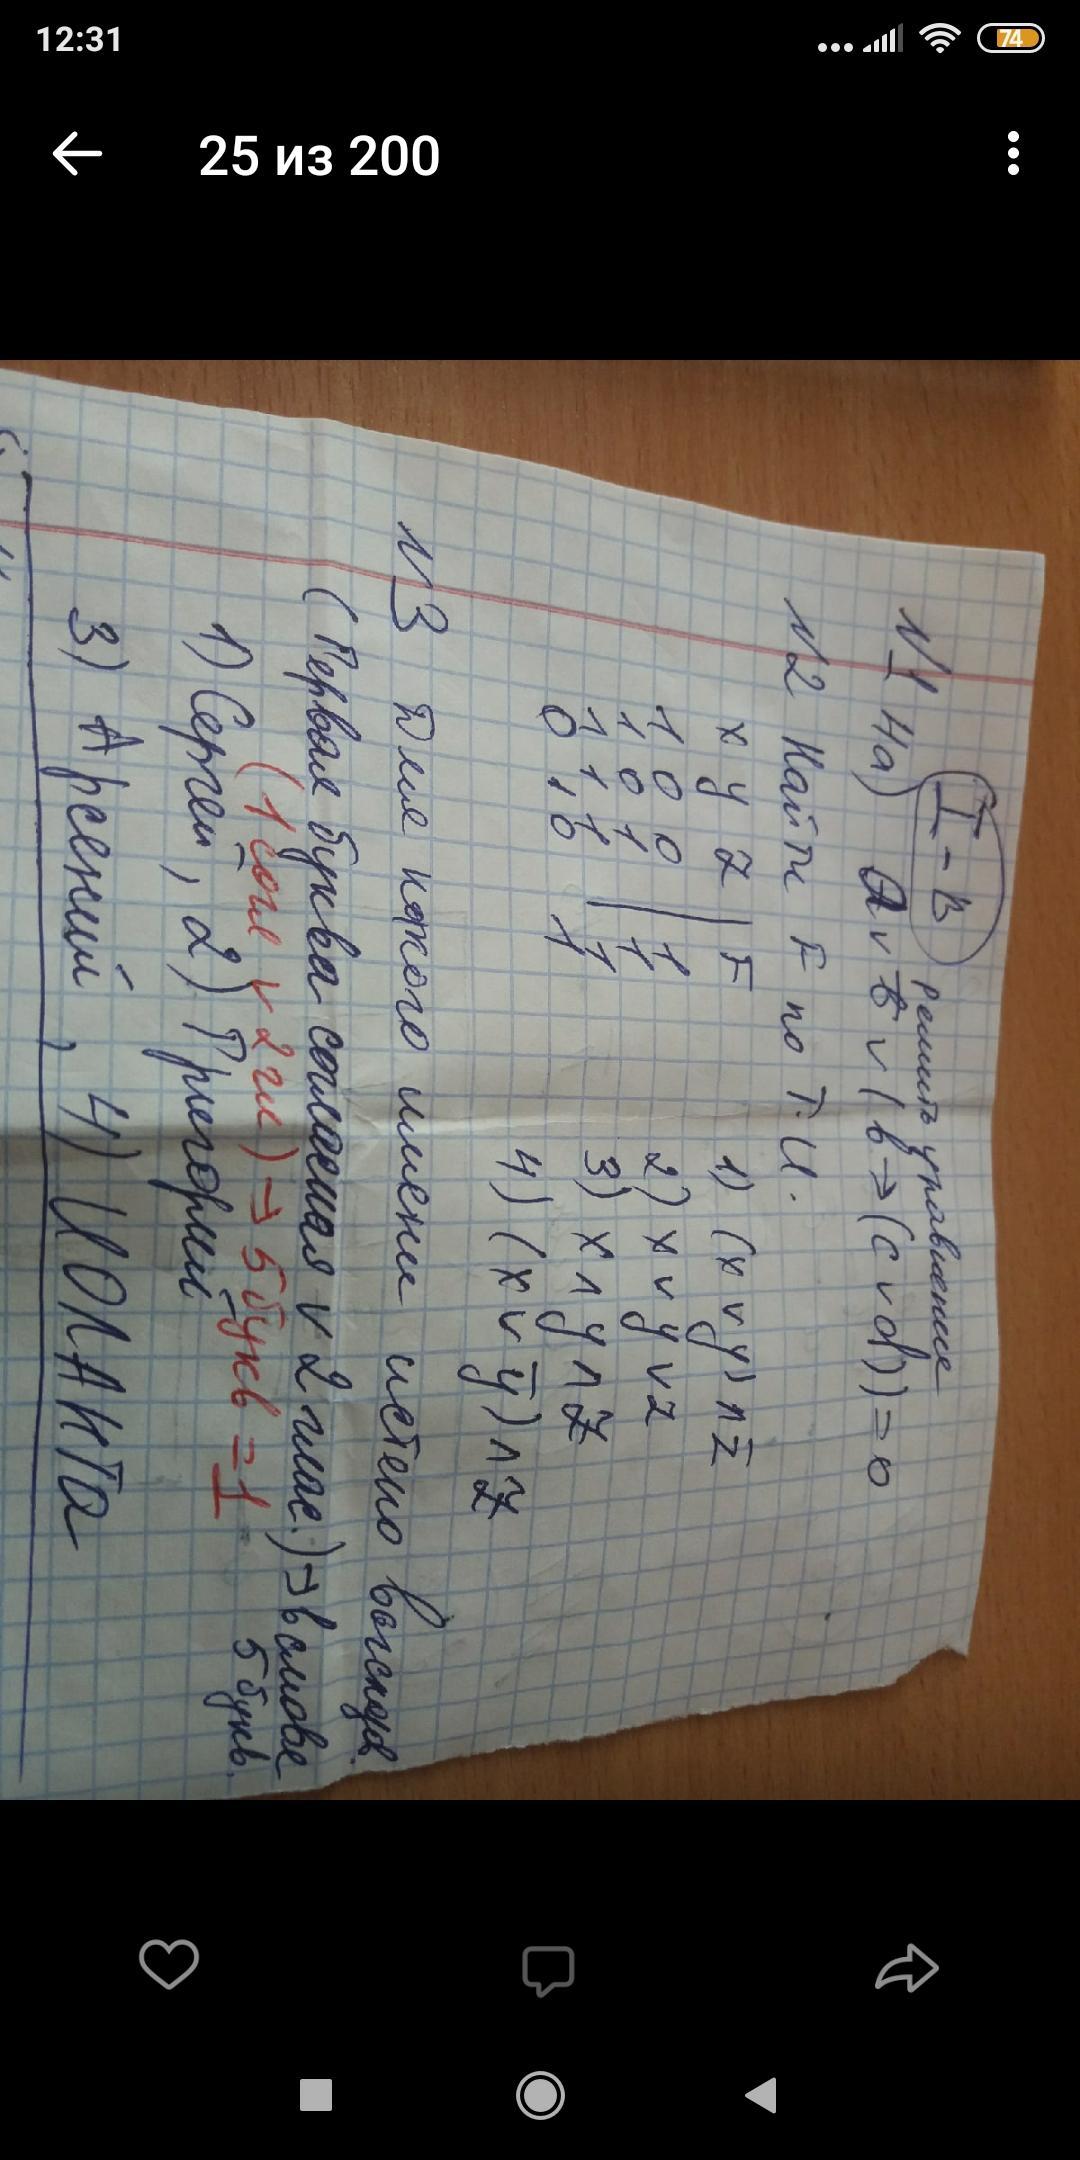 12:31
74
25 из 200
I-в
Решить уравнение
N1 4a) a v b v (b → (c v d)) = 0
N2 Найти F по Т.И.
x y z | F
1 0 0 | 1
1 0 1 | 1
1 1 1 | 1
0 1 0 | 1
1) (x v y) ∧ z̄
2) x v y v z
3) x ∧ y ∧ z
4) (x v ȳ) ∧ z
N3 Для какого имени истено выск.
(Первая буква согласная v 2 глас.) → в слове 5 букв.
(1 согл v 2 гл) → 5 букв = 1
1) Сергей, 2) Григорий
3) Арсений, 4) ИОЛАНТа